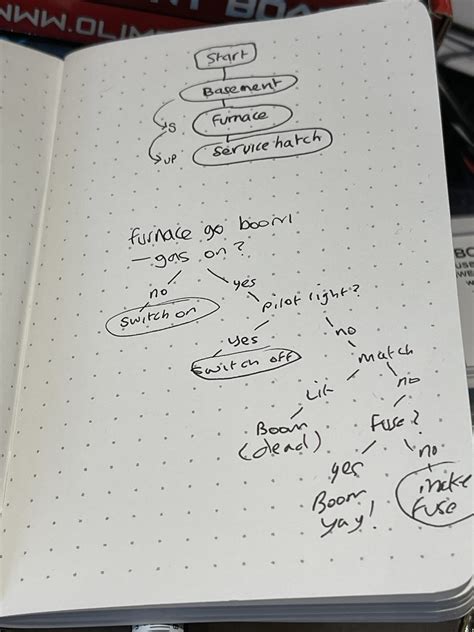 WWW.OLIM
Start
Basement
S
Furnace
UP
Service hatch
furnace go boom
- gas on?
no
yes
Switch on
pilot light?
yes
no
Switch off
match
Lit
no
Boom
(dead)
Fuse?
yes
no
Boom
yay!
make
fuse